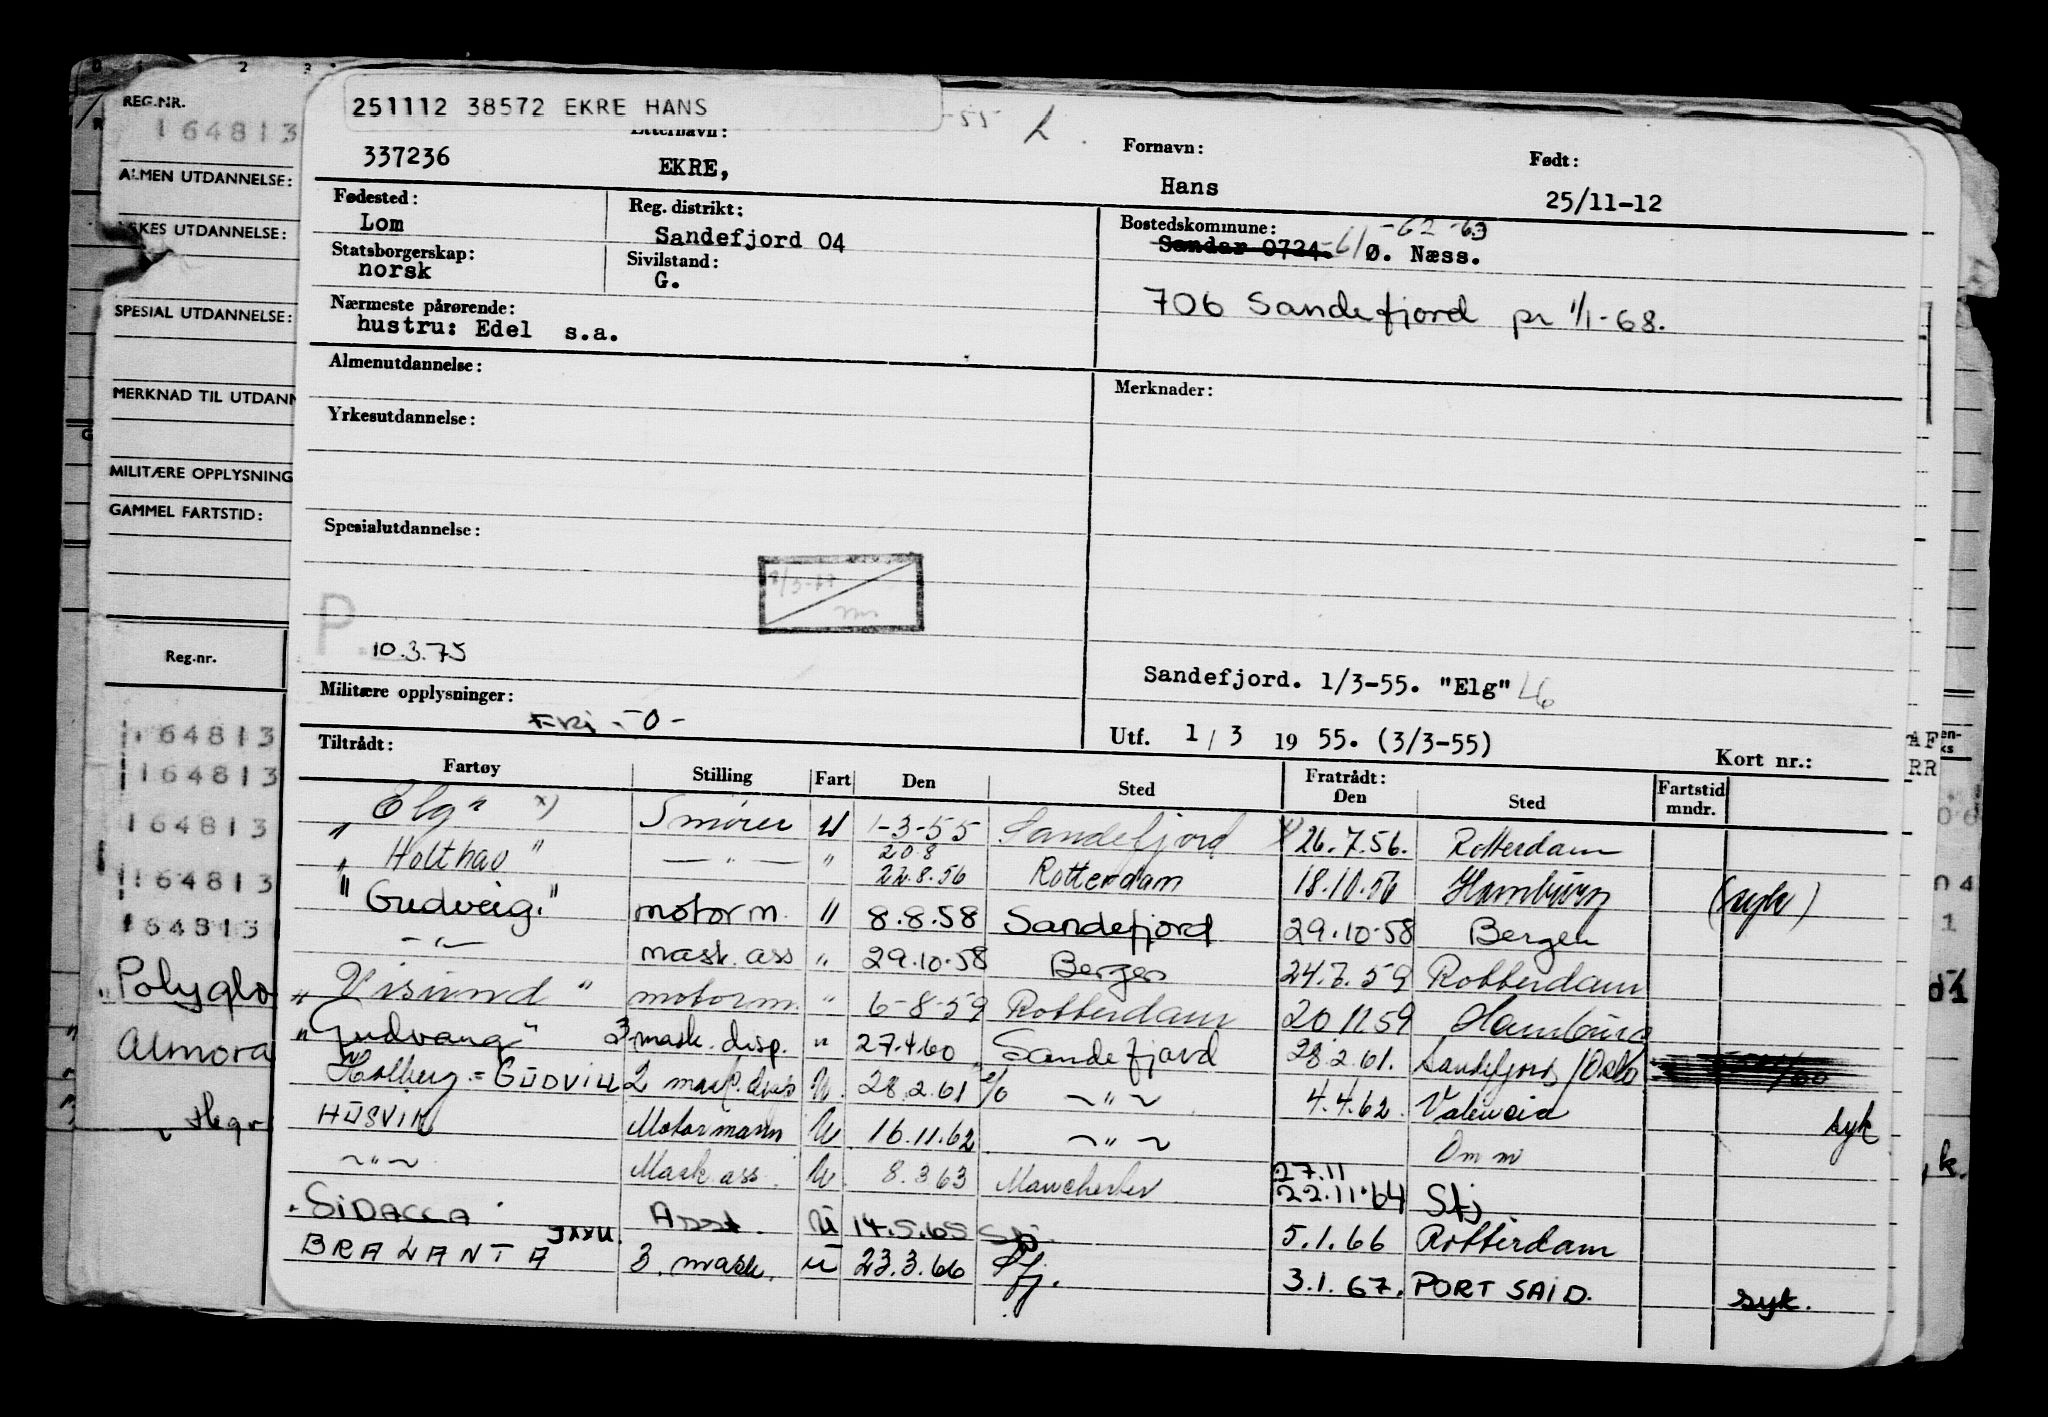 251112 38572 EKRE HANS
-55
REG.NR.
164813
Etternavn:
Fornavn:
Født:
337236 EKRE, Hans 25/11-12
ALMEN UTDANNELSE:
Fødested:
Lom
Reg. distrikt:
Sandefjord 04
Bostedskommune: -62 -63
Sandar 0724 -61 Ø. Næss.
UTDANNELSE:
Statsborgerskap:
norsk
Sivilstand:
G.
706 Sandefjord pr 1/1-68.
SPESIAL UTDANNELSE:
Nærmeste pårørende:
hustru: Edel s.a.
Almenutdannelse:
Merknader:
MERKNAD TIL UTDANN
Yrkesutdannelse:
MILITÆRE OPPLYSNING
GAMMEL FARTSTID:
Spesialutdannelse:
P.
10.3.75
Reg.nr.
Sandefjord. 1/3-55. "Elg" 46
Militære opplysninger:
Fri -0-
Utf. 1/3 19 55. (3/3-55)
Kort nr.:
Tiltrådt:
Fratrådt:
Fartøy Stilling Fart Den Sted Den Sted Fartstid mndr.
164813
164813
164813
164813
164813
"Elg" x) Smører U 1-3-55 Sandefjord x) 26.7.56. Rotterdam
"Holthav" — " — " 20.8 22.8.56 Rotterdam 18.10.56 Hamburg (syk)
"Gudveig." motorm. " 8.8.58 Sandefjord 29.10.58 Bergen
-"- mask. ass " 29.10.58 Bergen 24.7.59 Rotterdam
"Visund" motorm. " 6-8-59 Rotterdam 20.11.59 Hamburg
"Gudvang" 3 mask. disp. " 27.4.60 Sandefjord 28.2.61. Sandefjord/Oslo
Holberg = GUDVILL 2 mask. disp U. 28.2.61 ~"~ 4.4.62. Valencia syk
HUSVIK Motormann U 16.11.62 ~"~ Omm
~"~ Mask. ass. U. 8.3.63 Manchester 27.11 22.11.64 Sfj
"SIDACLA" Asst. U 14.5.65 Sfj 5.1.66 Rotterdam
BRALANTA JXXU. 3. mask. U 23.3.66 Sfj. 3.1.67. PORT SAID. syk.
Polyglo
Almora